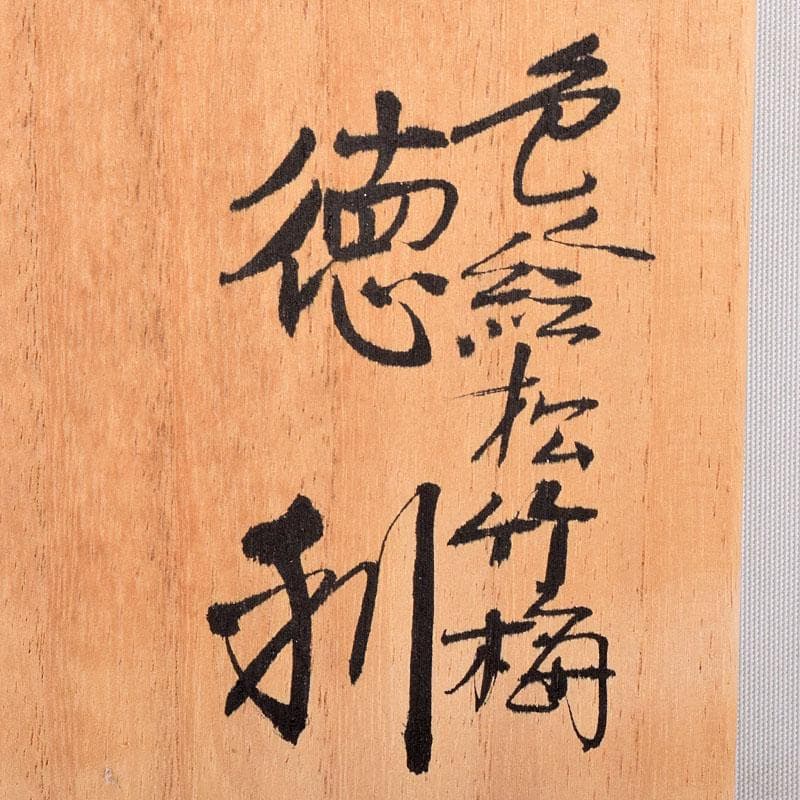 色絵松竹梅
徳利